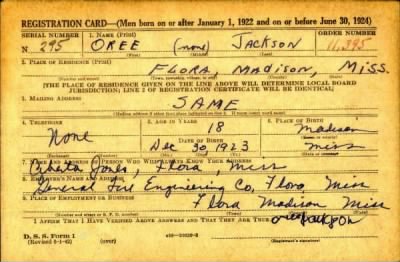 REGISTRATION CARD—(Men born on or after January 1, 1922 and on or before June 30, 1924)
SERIAL NUMBER 1. NAME (Print) ORDER NUMBER
N 295 OREE (none) JACKSON 11,395
(First) (Middle) (Last)
2. PLACE OF RESIDENCE (Print)
FLORA MADISON, MISS.
[THE PLACE OF RESIDENCE GIVEN ON THE LINE ABOVE WILL DETERMINE LOCAL BOARD
JURISDICTION; LINE 2 OF REGISTRATION CERTIFICATE WILL BE IDENTICAL]
3. MAILING ADDRESS
SAME
4. TELEPHONE 5. AGE IN YEARS 6. PLACE OF BIRTH
None 18 Madison
DATE OF BIRTH
Dec 30, 1923 Miss
7. NAME AND ADDRESS OF PERSON WHO WILL ALWAYS KNOW YOUR ADDRESS
Jones, Flora, Miss
8. EMPLOYER'S NAME AND ADDRESS
General Fire Engineering Co, Flora, Miss
9. PLACE OF EMPLOYMENT OR BUSINESS
Flora Madison Miss
I AFFIRM THAT I HAVE VERIFIED ABOVE ANSWERS AND THAT THEY ARE TRUE.
Oree Jackson
D. S. S. Form 1
(Revised 6-1-42) (Registrant's signature)